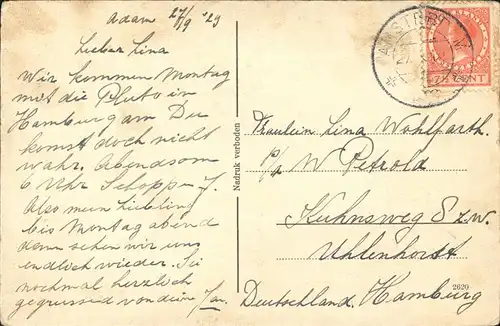 Adam 27/9 '29
Lieber Lina
Wir kommen Montag
mit die Pluto in
Hamburg am Du
komst doch nicht
wahr. Abendsom
6 Uhr Schoppe J.
Also mein Liebling
bis Montag abend
dann sehen wir uns
endloch wieder. Sei
nochmal herzloch
gegrussed von dein Jan.
Nadruk verboden
7½ CENT
Fräulein Lina Wohlfarth.
p/a W Petrold
Kuhnsweg 8 z.w.
Uhlenhorst
Deutschland. Hamburg
2620